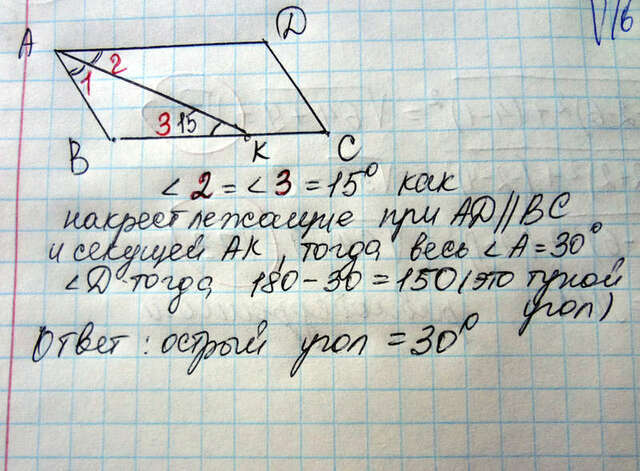 A
D
1
2
3
15
B
K
C
∠2 = ∠3 = 15° как
накрест лежащие при AD||BC
и секущей AK, тогда весь ∠A=30°
∠D тогда 180-30=150(это тупой
угол)
Ответ: острый угол = 30°